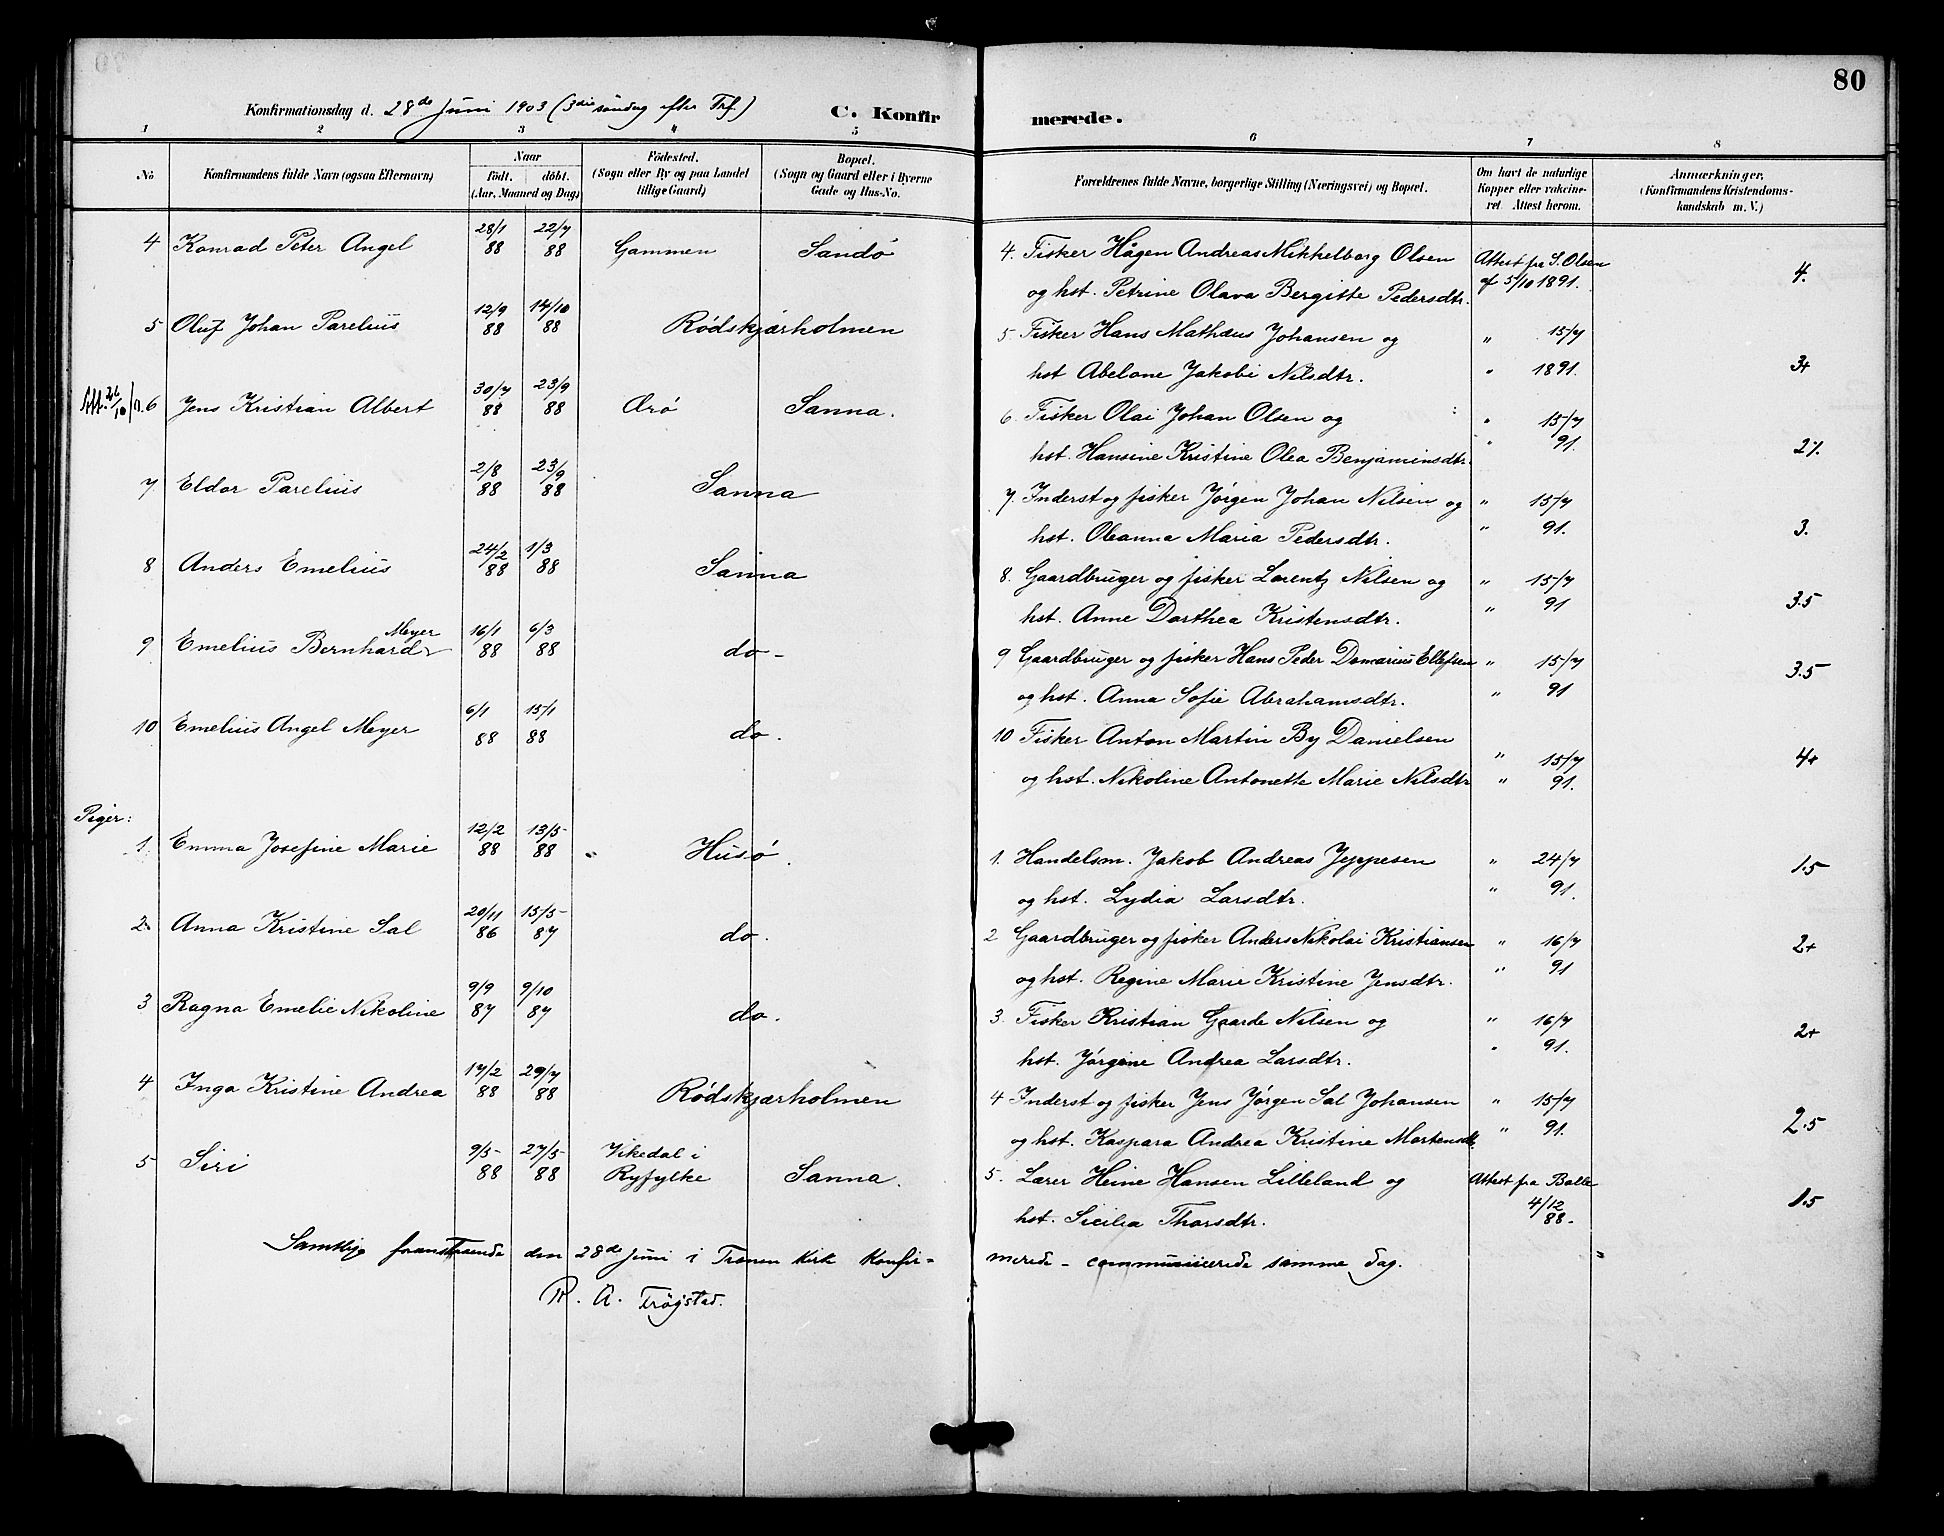 80
Konfirmationsdag d. 28de Juni 1903 (3die søndag efter Trf.) C. Konfirmerede.
1 2 3 4 5 6 7 8
No
Konfirmandens fulde Navn (ogsaa Efternavn)
Naar
födt. döbt.
(Aar, Maaned og Dag)
Födested.
(Sogn eller By og paa Landet
tillige Gaard)
Bopæl.
(Sogn og Gaard eller i Byerne
Gade og Hus-No.
Forældrenes fulde Navne, borgerlige Stilling (Næringsvei) og Bopæl.
Om havt de naturlige
Kopper eller vakcine-
ret. Attest herom.
Anmærkninger,
(Konfirmandens Kristendoms-
kundskab m. V.)
4 Konrad Peter Angel 28/1 88 22/7 88 Gammen Sandö 4. Fisker Hågen Andreas Mikkelborg Olsen Attest fra S. Olsen 4.
og hst. Petrine Olava Bergitte Pedersdtr. af 5/10 1891.
5 Oluf Johan Parelius 12/9 88 14/10 88 Rödskjærholmen 5 Fisker Hans Mathæus Johansen og " 15/7 3+
hst Abelone Jakobi Nilsdtr. " 1891.
Att. 26/10 6 Jens Kristian Albert 30/7 88 23/9 88 Ærö Sanna. 6 Fisker Olai Johan Olsen og " 15/7
hst. Hansine Kristine Olea Benjaminsdtr. " 91.
7 Eldor Parelius 2/8 88 23/9 88 Sanna 7. Inderst og fisker Jörgen Johan Nilsen og " 15/7 3.
hst. Oleanna Maria Pedersdtr. " 91.
8 Anders Emelius 24/2 88 1/3 88 Sanna 8. Gaardbruger og fisker Lorentz Nilsen og " 15/7 3.5
hst. Anne Dorthea Kristensdtr. " 91
9 Emelius Bernhard Meyer 16/1 88 6/3 88 do - 9 Gaardbruger og fisker Hans Peder Domarius Ellefsen " 15/7 3.5
og hst. Anna Sofie Abrahamsdtr. " 91
10 Emelius Angel Meyer 6/1 88 15/1 88 do. 10 Fisker Anton Martin By Danielsen " 15/7 4+
og hst. Nikoline Antonette Marie Nilsdtr " 91.
Piger:
1 Emma Josefine Marie 12/2 88 13/5 88 Husö. 1. Handelsm. Jakob Andreas Jeppesen " 24/7 1.5
og hst. Lydia Larsdtr. " 91.
2. Anna Kristine Sal 20/11 86 15/5 87 do. 2 Gaardbruger og fisker Anders Nikolai Kristiansen " 16/7 2+
og hst. Regine Marie Kristine Jensdtr. " 91
3 Ragna Emelie Nikoline 9/9 87 9/10 87 do. 3. Fisker Kristian Gaarde Nilsen og " 16/7 2+
hst. Jörgine Andrea Larsdtr. " 91.
4 Inga Kristine Andrea 17/2 88 29/7 88 Rödskjærholmen 4 Inderst og fisker Jens Jörgen Sal Johansen " 15/7 2.5
og hst. Kaspara Andrea Kristine Mortensdt. " 91.
5 Siri 9/5 88 27/5 88 Vikedal i Ryfylke Sanna. 5. Lærer Heine Hansen Lilleland og Attest fra Balle 1.5
hst. Sicilia Thorsdtr. 4/12 88-
Samtlige foranstaaende den 28de Juni i Trænen Kirke Konfir- merede - communicerede samme Dag.
A. Trøgstad.